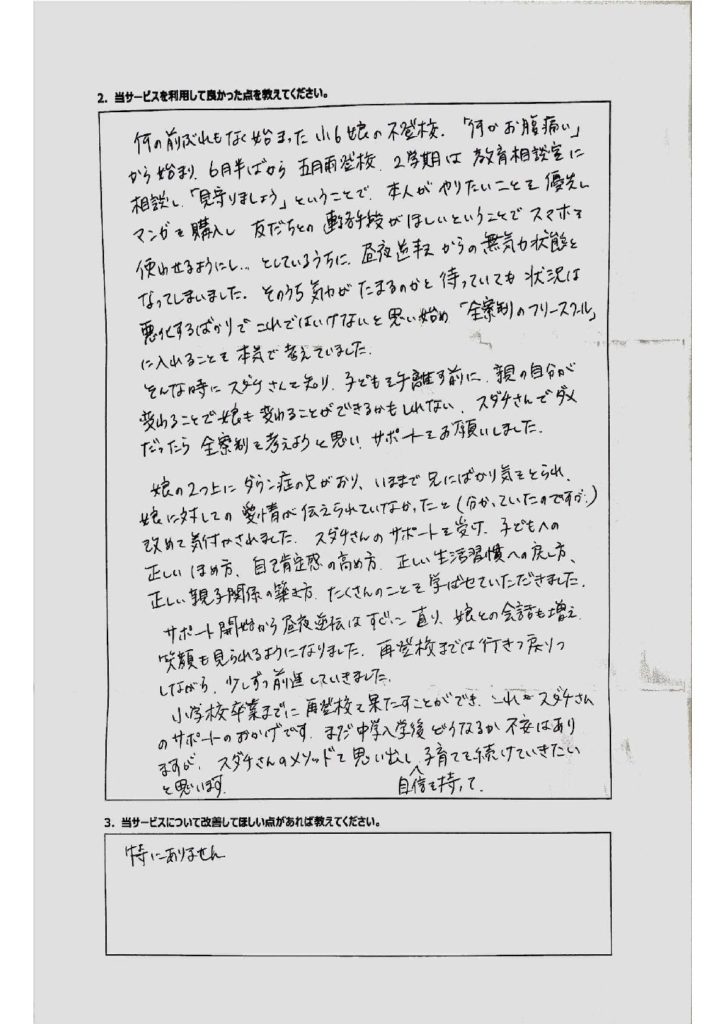 2. 当サービスを利用して良かった点を教えてください。
何の前ぶれもなく始まった小6娘の不登校。「何かお腹痛い」
から始まり、6月半ばから五月雨登校、2学期は教育相談室に
相談し、「見守りましょう」ということで、本人がやりたいことを優先し
マンガを購入し 友だちとの連絡手段がほしいということでスマホを
使わせるようにし… としているうちに、昼夜逆転からの無気力状態と
なってしまいました。そのうち気力がたまるのかと待っていても状況は
悪化するばかりでこれではいけないと思い始め「全寮制のフリースクール」
に入れることを本気で考えていました。
そんな時にスダチさんを知り、子どもを手離す前に、親の自分が
変わることで娘も変わることができるかもしれない、スダチさんでダメ
だったら全寮制を考えようと思い、サポートをお願いしました。
娘の2つ上にダウン症の兄がおり、いままで兄にばかり気をとられ、
娘に対しての愛情が伝えられていなかったと(分かっていたのですが)
改めて気付かされました。スダチさんのサポートを受け、子どもへの
正しいほめ方、自己肯定感の高め方、正しい生活習慣への戻し方、
正しい親子関係の築き方、たくさんのことを学ばせていただきました。
サポート開始から昼夜逆転はすぐに直り、娘との会話も増え、
笑顔も見られるようになりました。再登校までは行きつ戻りつ
しながら、少しずつ前進していきました。
小学校卒業までに再登校を果たすことができ、これもスダチさん
のサポートのおかげです。まだ中学入学後どうなるか不安はあり
ますが、スダチさんのメソッドを思い出し、子育てを続けていきたい
と思います。
自信を持って、
3. 当サービスについて改善してほしい点があれば教えてください。
特にありません